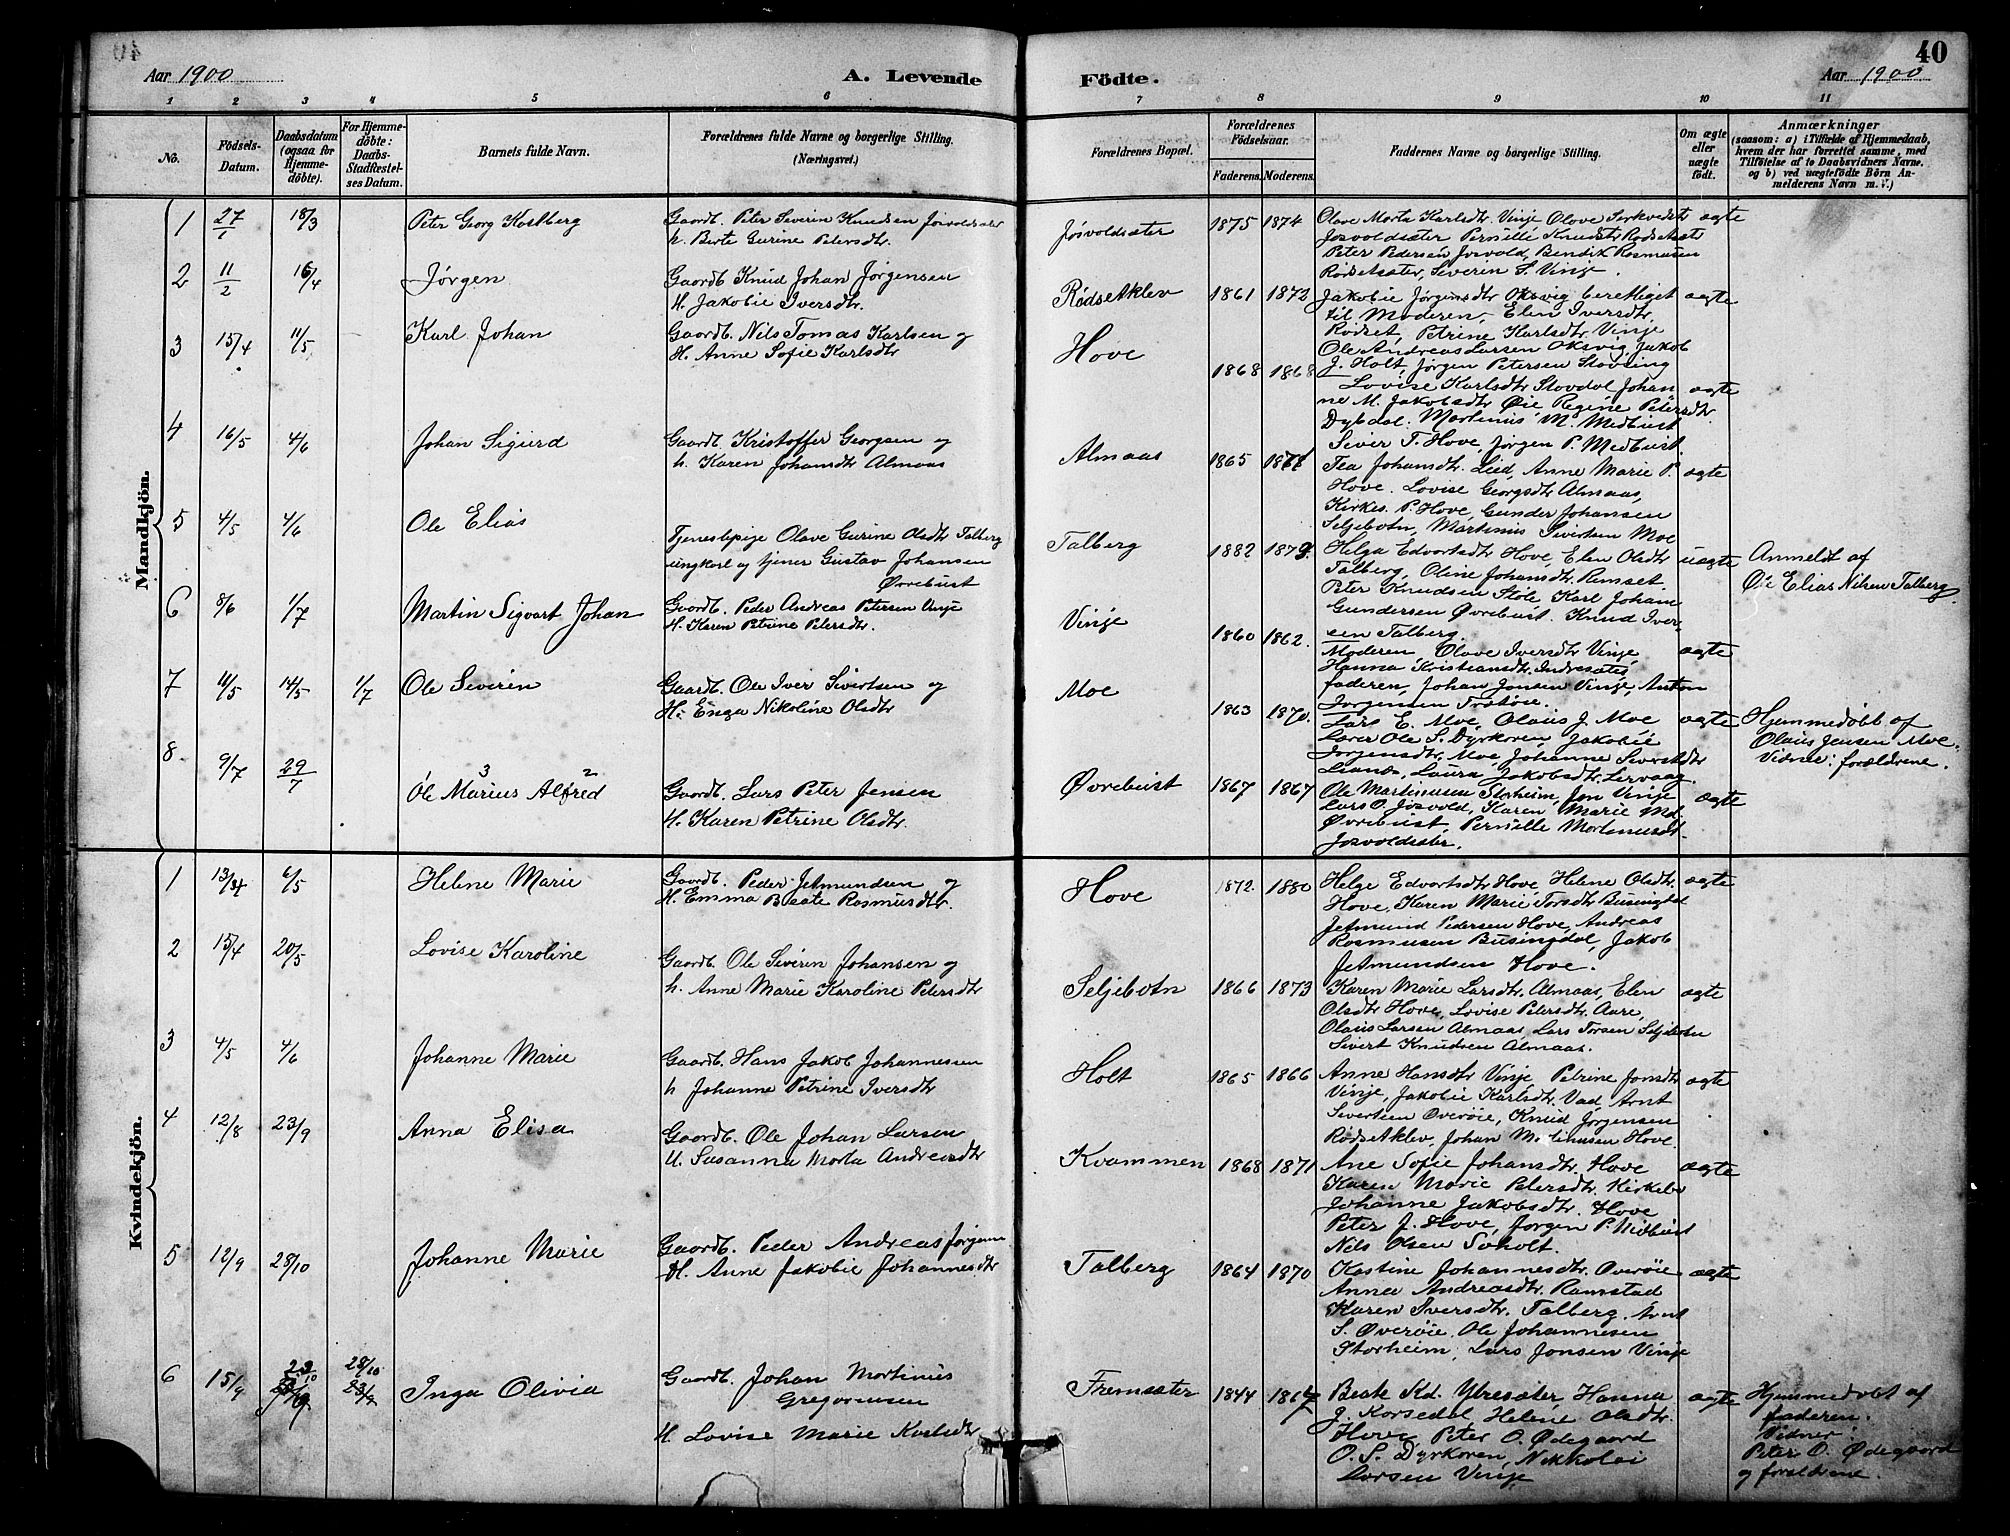 40
Aar 1900
A. Levende Födte.
Aar 1900
1 2 3 4 5 6 7 8 9 10 11
No.
Födsels-Datum.
Daabsdatum (ogsaa for Hjemme-döbte).
For Hjemme-döbte: Daabs-Stadfæstel-ses Datum.
Barnets fulde Navn.
Forældrenes fulde Navne og borgerlige Stilling. (Næringsvei.)
Forældrenes Bopæl.
Forældrenes Födselsaar.
Faderens. Moderens.
Faddernes Navne og borgerlige Stilling.
Om ægte eller uægte födt.
Anmærkninger
(saasom: a) i Tilfælde af Hjemmedaab, hvem der har forrettet samme, med Tilföielse af to Daabsvidners Navne, og b) ved uægtefödte Börn An-melderens Navn m. V.)
Mandkjön.
1 27/1 18/3 Peter Georg Kostberg
Gaardb. Peter Severin Knudsen Jösvoldsæter
h. Berte Gurine Petersdtr.
Jösvoldsæter 1875 1874
Olave Marta Karlsdtr. Vinje Olave
Jösvoldsæter Pernille Knudsdtr Rödsetsæt
Peter Pedersen Jösvold, Bendik Rasmusen
Rödsetsæter, Severin S. Vinje.
ægte
2 11/2 16/4 Jørgen
Gaardb. Knud Johan Jørgensen
H. Jakobie Iversdtr.
Rödsetklev 1861 1873
Jakobie Jørgensdtr Oksvig berettiget
til Moderen, Elen Iversdtr,
Rödset, Petrine Karlsdtr Vinje
Ole Andreas Larsen Oksvig, Jakob
J. Holt, Jørgen Petersen Stavling
ægte
3 15/4 11/5 Karl Johan
Gaardb. Nils Tomas Karlsen og
H. Anne Sofie Karlsdtr
Hove 1868 1868
Lovise Karlsdtr Stavdal Johan
ne M. Jakobsdtr Øie Regine Petersdtr
Dybdal. Martinius M. Medbust
Siver T. Hove, Jørgen P. Medbust.
ægte
4 16/5 4/6 Johan Sigurd
Gaardb. Kristoffer Georgsen og
h. Karen Johansdtr Almaas
Almaas 1865 1871
Tea Johansdtr. Lied, Anne Marie P.
Hove. Lovise Georgsdtr Almaas,
Kirkes. P. Hove, Gunder Johansen
Seljebotn, Martinus Sivertsen Moe
ægte
5 4/5 4/6 Ole Elias
Tjenestepige Olave Gurine Olsdtr Talberg
ungkarl og tjener Gustav Johansen
Øvrebust
Talberg 1882 1879
Helga Edvartsdtr Hove, Elen Olsdtr
Talberg, Oline Johansdtr. Remset
Peter Knudsen Stöle Karl Johan
Gundersen Øvrebust. Knud Iver-
sen Talberg.
uægte
Anmeldt af
Ole Elias Nilsen Talberg
6 8/6 1/7 Martin Sigvart Johan
Gaardb. Peder Andreas Petersen Vinje
H. Karen Petrine Petersdtr.
Vinje 1860 1862.
Moderen, Olave Iversdtr Vinje,
Hanna Kristiansdtr. Indresæter,
faderen, Johan Jonsen Vinje, Anton
Jørgensen
ægte
7 11/5 14/5 1/7 Ole Severin
Gaardb. Ole Iver Sivertsen og
H. Enga Nikoline Olsdtr
Moe 1863 1870.
Lars E. Moe, Olaus J. Moe
Lærer Ole S. Dyrkoren, Jakobie
Jørgensdtr. Moe, Johanne Sivertsdtr
Lianes, Laura Jakobsdtr. Lervaag.
ægte
Hjemmedöbt af
Olaus Jensen Moe.
Vidner: forældrene.
8 9/7 29/7 Ole Marius Alfred 3 2
Gaardb. Lars Peter Jensen
H. Karen Petrine Olsdtr.
Øvrebust 1867 1867
Ole Martinusen Storheim, Jon Vinje
Lars O. Jösvold, Karen Marie
Øvrebust, Pernille Martinusdt.
Josvoldsæter.
ægte
Kvindekjön.
1 13/4 6/5 Helene Marie
Gaardb. Peder Jetmundsen og
H. Emma Beate Rasmusdtr.
Hove 1872. 1880
Helge Edvartsdtr Hove, Helene Olsdtr.
Hove, Karen Marie Torsdtr Busingdal
Jetmund Pedersen Hove, Andreas
Rasmusen Busingdal, Jakob
Jetmundsen Hove.
ægte
2 15/4 20/5 Lovise Karoline
Gaardb. Ole Severin Johansen og
h. Anne Marie Karoline Petersdtr
Seljebotn 1866 1873
Karen Marie Larsdtr. Almaas, Elen
Olsdtr Hove, Lovise Petersdtr. Aare,
Olaus Larsen Almaas Lars Torsen Seljebotn
Sivert Knudsen Almaas.
ægte
3 4/5 4/6 Johanne Marie
Gaardb. Hans Jakob Johannesen
h Johanne Petrine Iversdtr
Holt 1865 1866
Anne Hansdtr Vinje, Petrine Jonsdtr
Vinje, Jakobie Karlsdtr. Vad, Arnt
Sivertsen Overöie, Knud Jörgensen
Rödsetklev, Johan Martinusen Hove.
ægte
4 12/8 23/9 Anna Elisa
Gaardb. Ole Johan Larsen
H. Susanna Marta Andreasdtr
Kvammen 1868 1871
Ane Sofie Johansdtr. Hove
Karen Marie Petersdtr. Kirkebø
Johanne Jakobsdtr. Hove
Peter J. Hove, Jørgen P. Midbust
Nils Olsen Søholt.
ægte
5 12/9 28/10 Johanne Marie
Gaardb. Peder Andreas Jørgensen
H. Anne Jakobie Johannesdtr
Talberg 1864 1870
Kastine Johannesdtr. Overöie
Anna Andreasdtr. Ramstad
Karen Iversdtr. Talberg, Arnt
S. Øverøie, Ole Johannesen
Storheim, Lars Jonsen Vinje
ægte
6 15/9 23/9 28/10 Inga Olivia
Gaardb. Johan Martinus
Gregoriusen
H. Lovise Marie Karlsdtr
Fremsæter 1844 1867
Beate Kd. Ytresæter, Hanna
J. Korsedal, Helene Olsdtr.
Hove Peter O. Ødegaard
O. S. Dyrkoren, Nikkolai
Larsen Vinje
ægte
Hjemmedøbt af
faderen.
Vidner:
Peter O. Ødegaard
og forældrene.